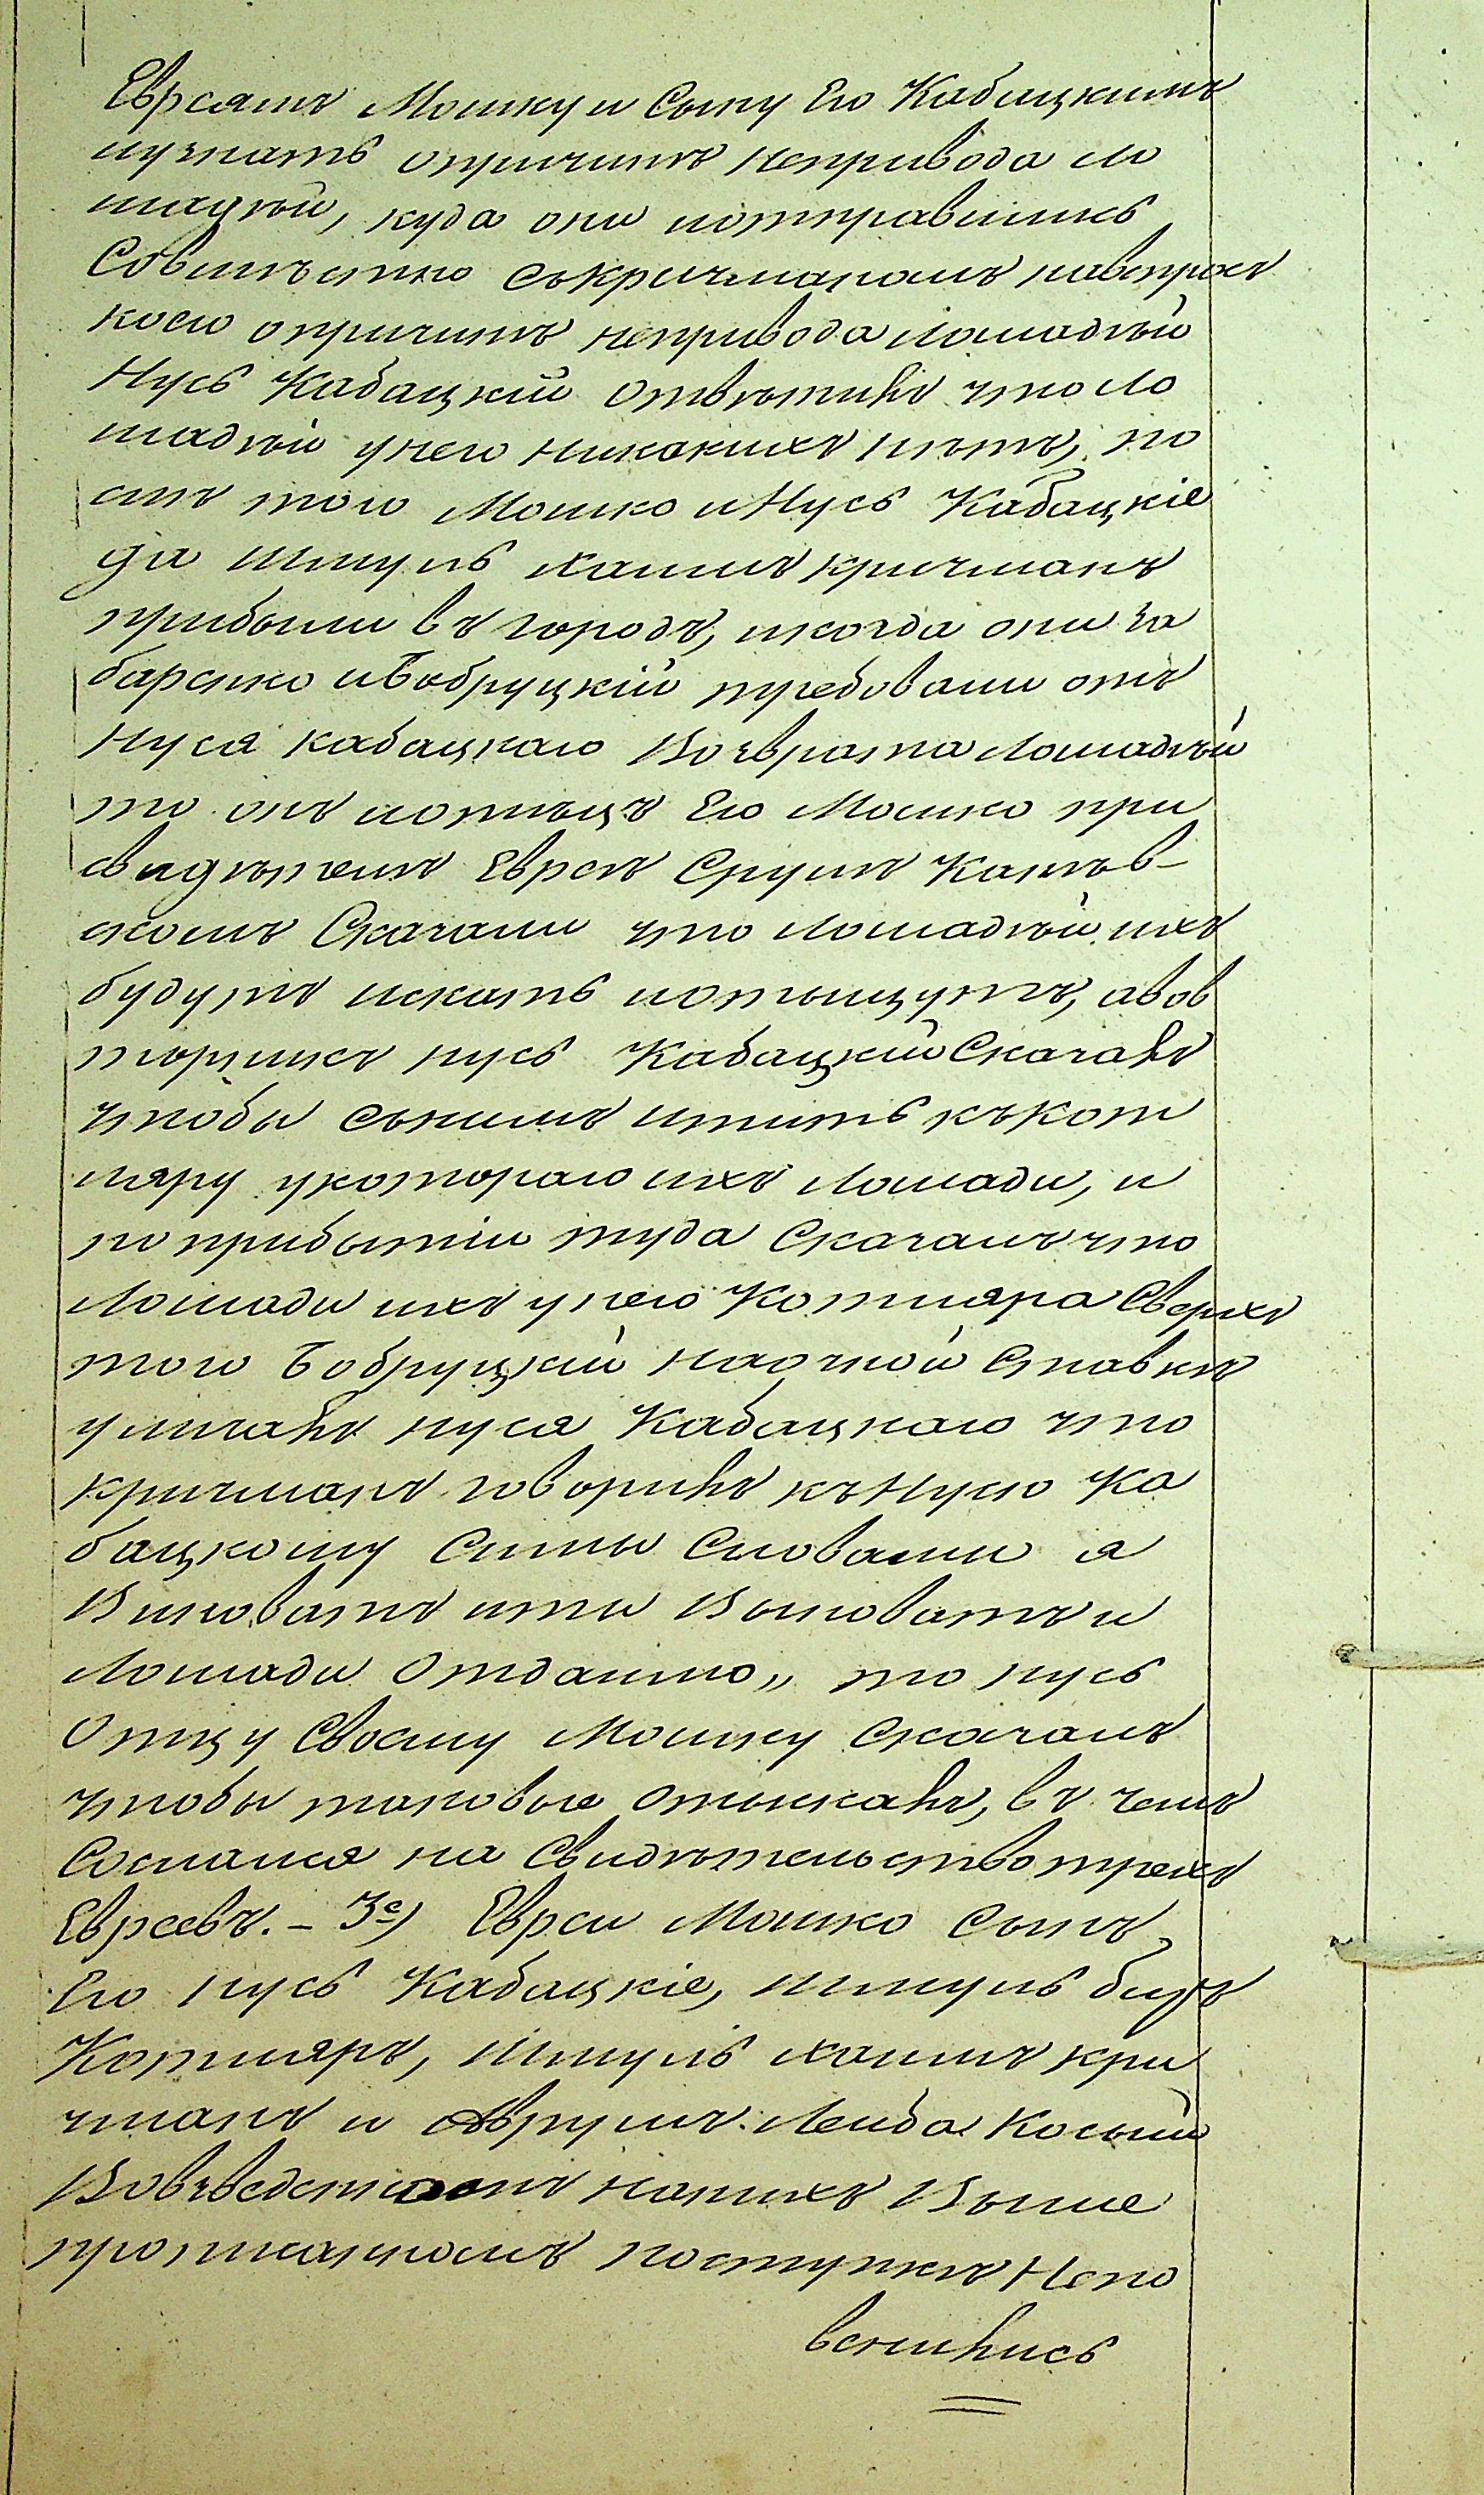 Евреямъ Мошку и Сыну Его Кабацкимъ
изчнать опричинѣ непривода ло
шадѣй, куда они иотправились
Совмѣстно съкричманомъ навопрос
коею опричинѣ непривода лошадѣй
Нусь Кабацкій Отвѣтилъ что ло
шадѣй унего никакихъ нѣтъ, по
слѣ того Мошко иНусь Кабацкіе
да Шмуль хаимъ кричманъ
прибыли въ городъ, икогда они за
баренко иБобруцкій требовали отъ
Нуся кабацкаго Возврата Лошадѣй
то онъ иотѣцъ Его Мошко при
свидѣтелѣ Евреѣ Срулѣ Каnѣв-
скомъ Сказали что лошадѣй ихъ
будутъ искать иотыщутъ, авов
торникъ нусь Кабацкій Сказалъ
чтобы сънимъ итить къкот
ляру укотораго ихъ Лошади, и
поприбытіи туда Сказалъ что
Лошади ихъ унего Котляра Сверхъ
того Бобруцкій наочной Ставкѣ
уличалъ нуся Кабацкаго что
кричманъ говорилъ къНусю Ка
бацкому Сими Словами я
Виноватъ иты Виноватъ и
Лошади Отдаимо,, то нусь
Отцу Своему Мошку Сказалъ
чтобы таковые Отыскалъ, въ чемъ
Сослался на Свидѣтельство трехъ
Евреевъ. – 3е) Евреи Мошко Сынъ
Его нусь Кабацкіе, Шмуль биръ
Котляръ, Шмуль хаимъ кри
чманъ и Аврумъ Лейба Косый
Вовзведенномъ нанихъ Выше
прописанномъ поступкѣ Непо
венились